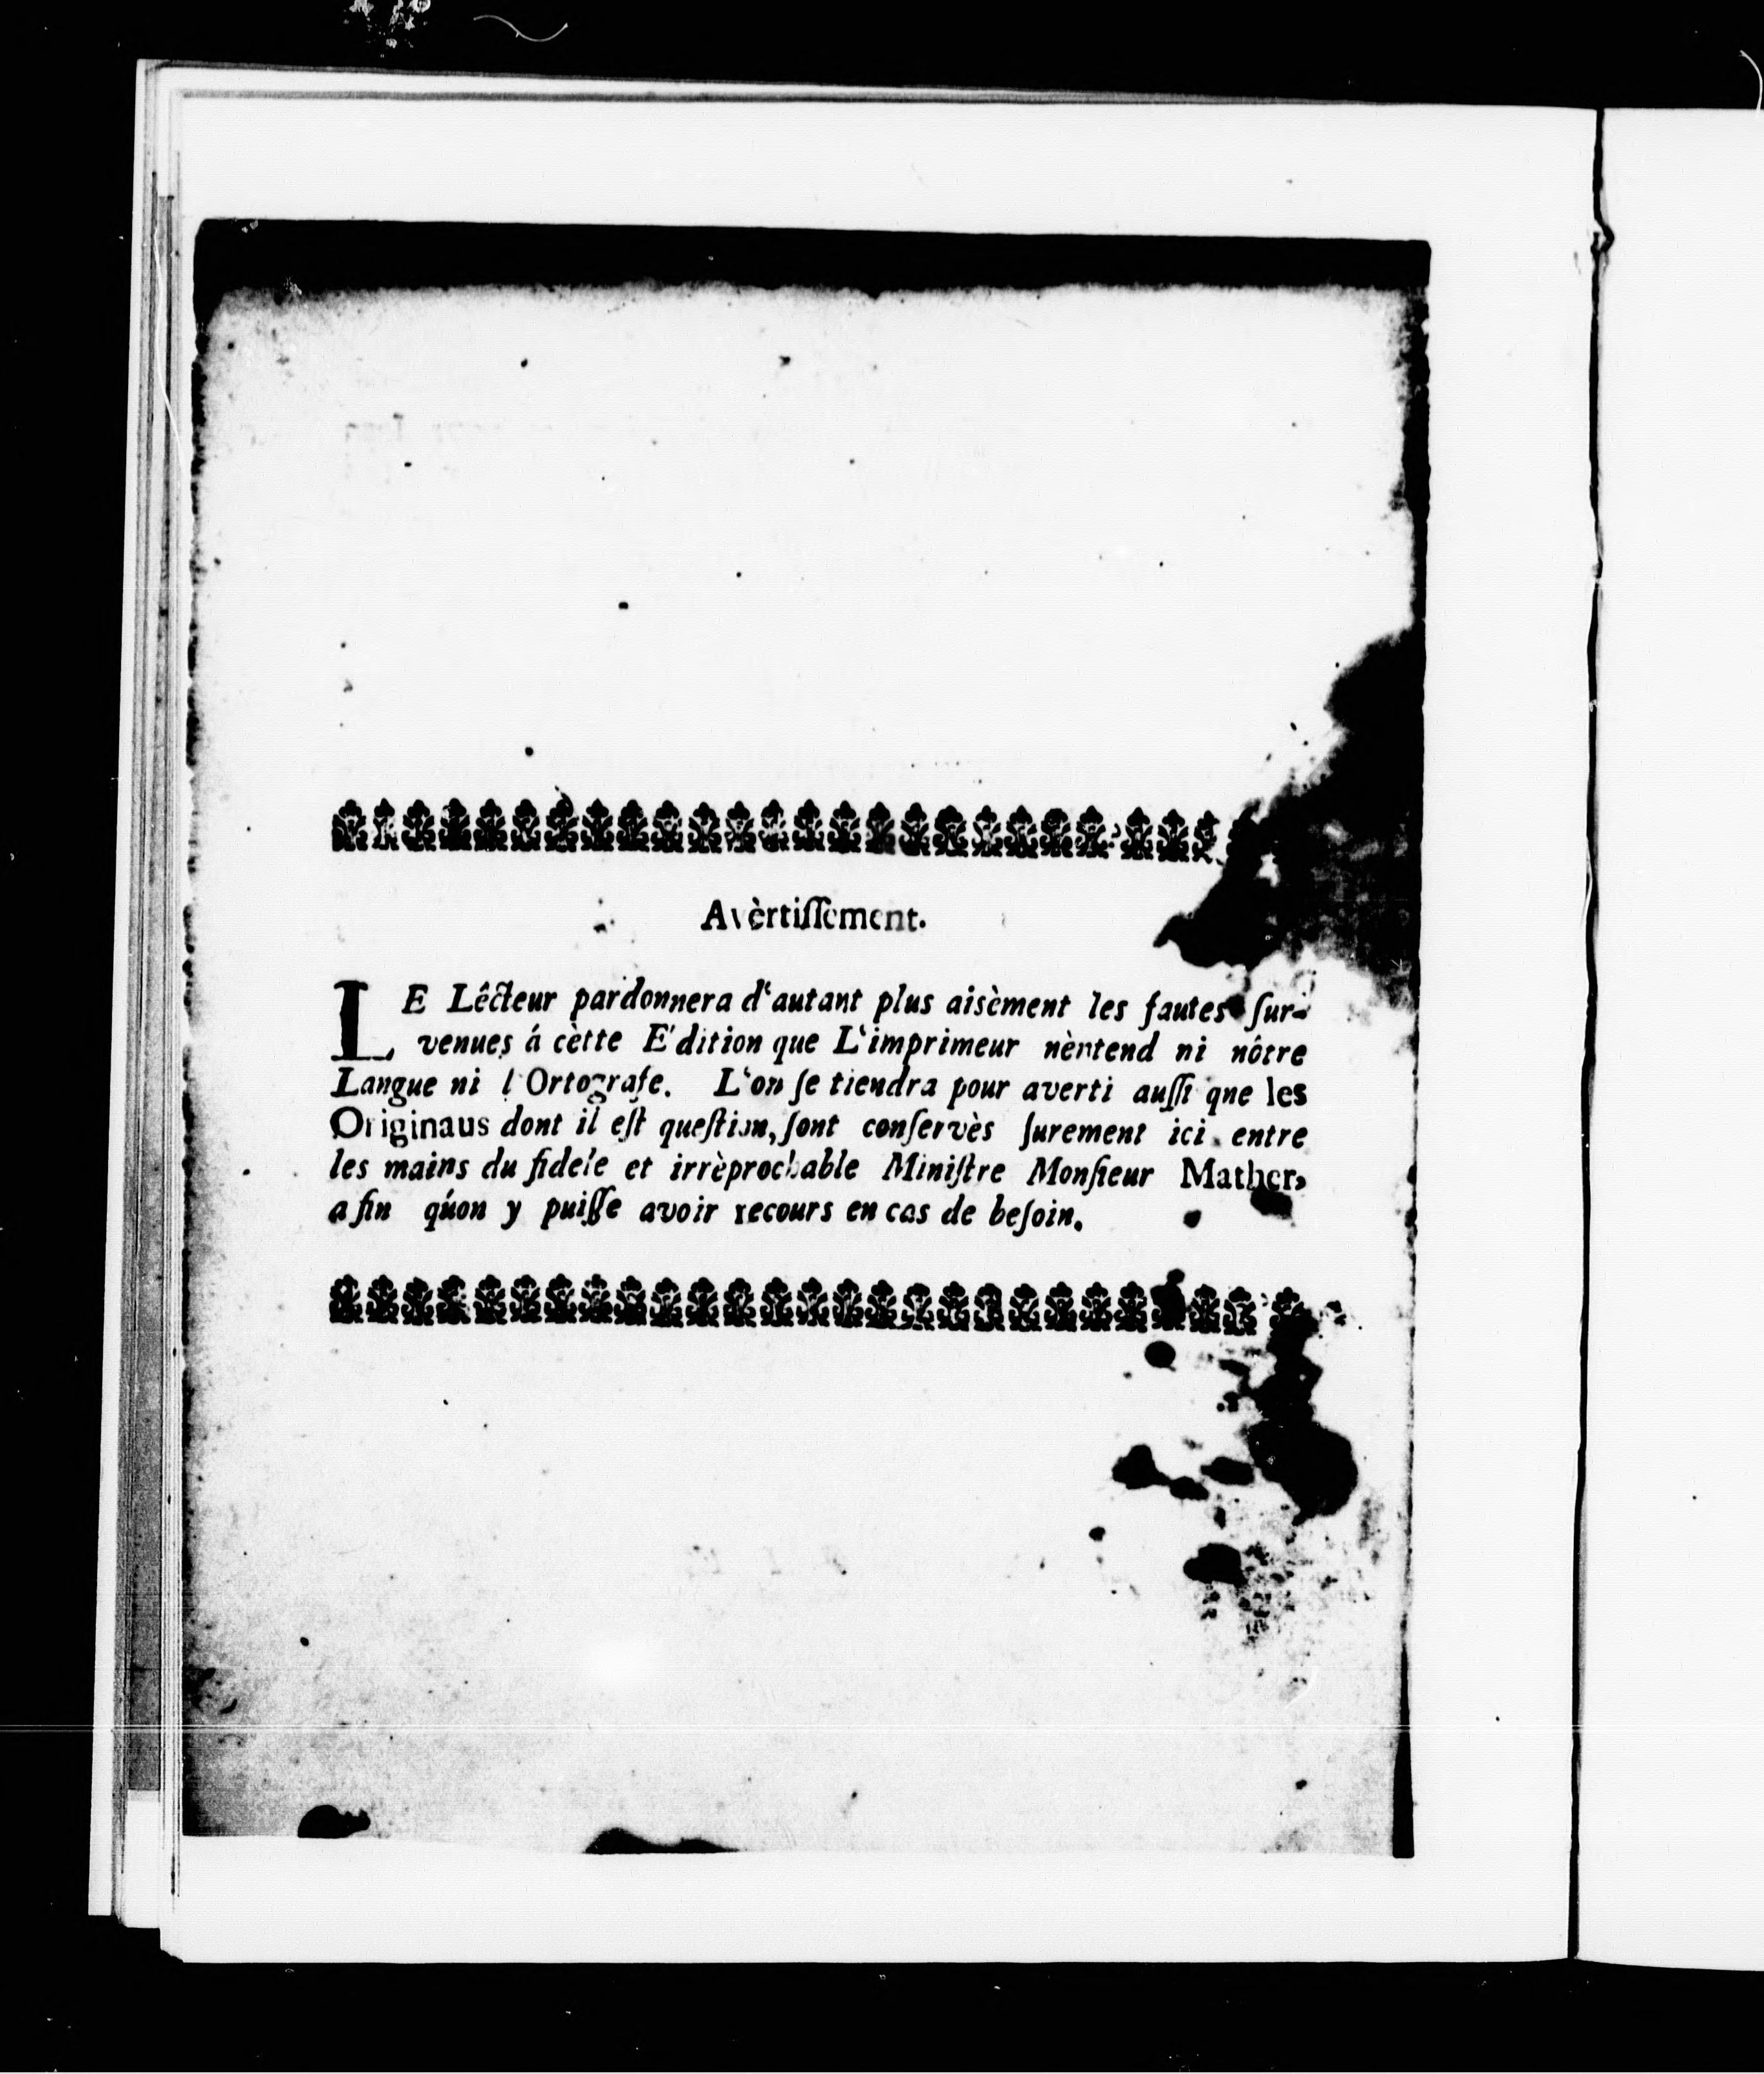 Avèrtiſſement.
LE Lêcteur pardonnera d'autant plus aisèment les fautes ſur-
venues á cètte E'dition que L'imprimeur nèntend ni nôtre
Langue ni l'Ortografe. L'on ſe tiendra pour averti auſſi que les
Originaus dont il eſt queſtion, ſont conſervès ſurement ici entre
les mains du fidele et irrèprochable Miniſtre Monſieur Mather,
a fin qúon y puiſſe avoir recours en cas de beſoin.